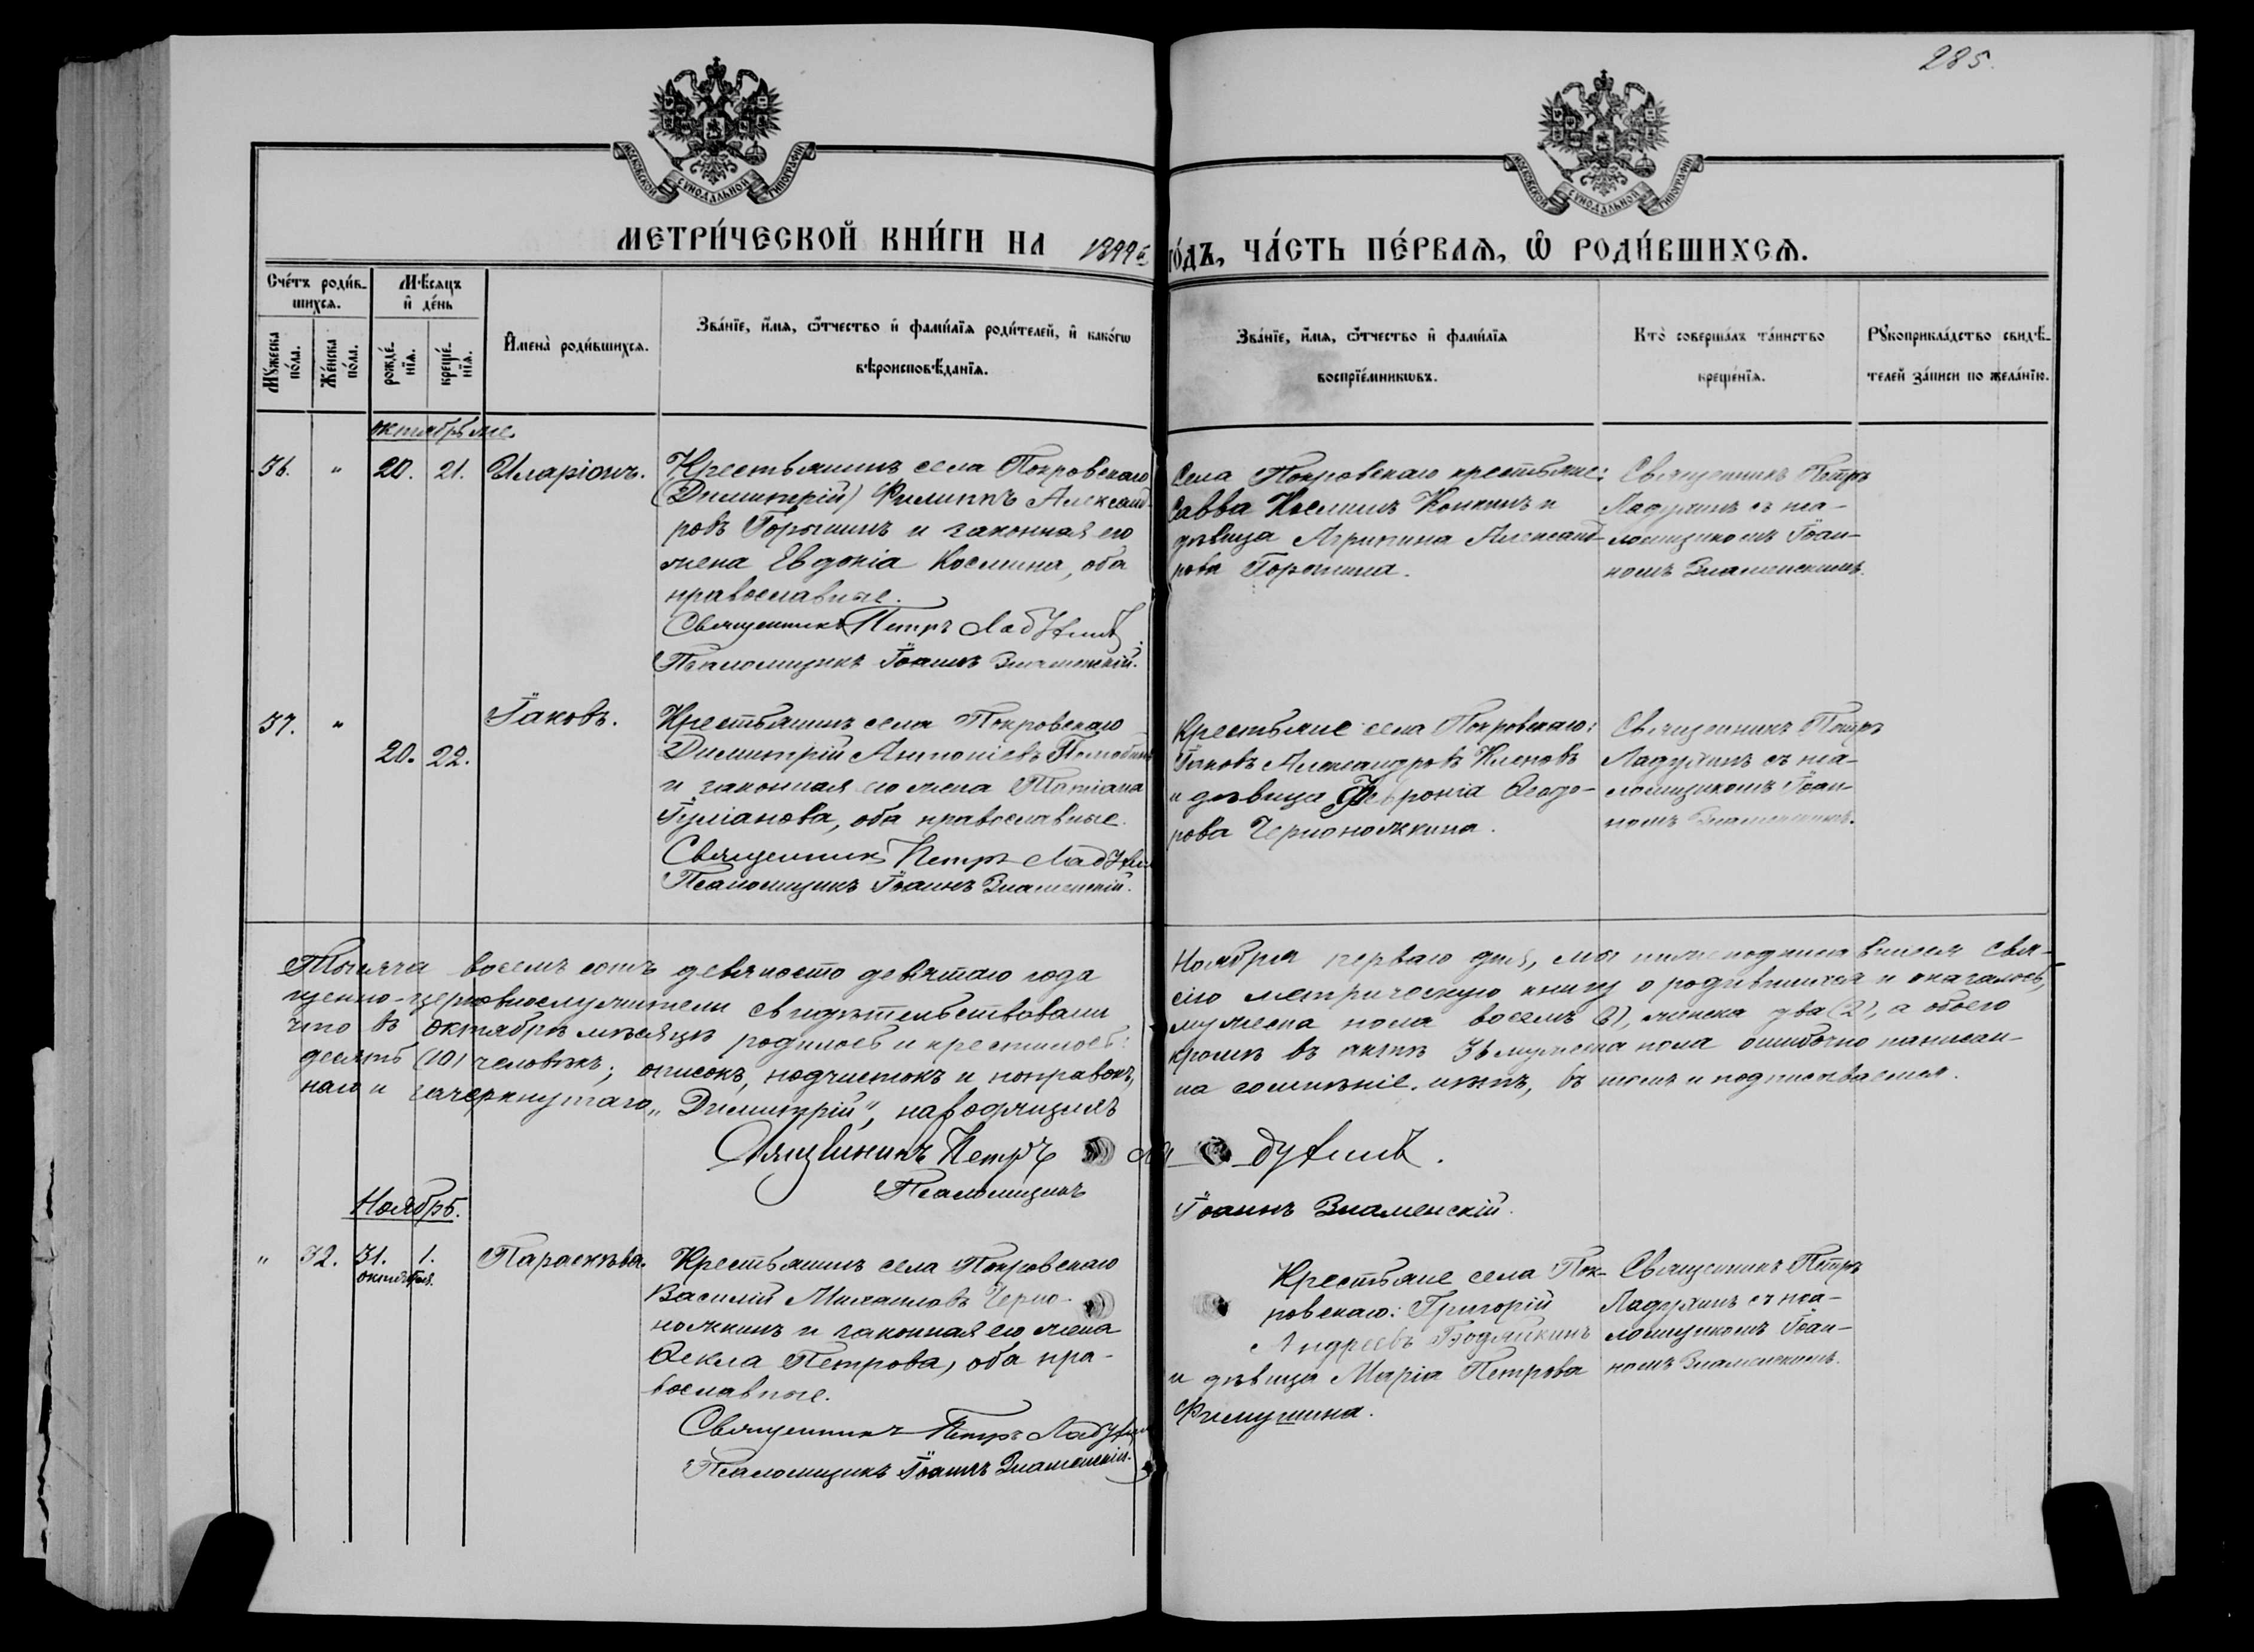 285.
МОСКОВСКОЙ СѴНОДАЛЬНОЙ ТИПОГРАФІИ
МОСКОВСКОЙ СѴНОДАЛЬНОЙ ТИПОГРАФІИ
МЕТРИ́ЧЕСКОЙ КНИ́ГИ НА 1899й го́дъ, ЧА́СТЬ ПЕ́РВАѦ, Ѽ РОДИ́ВШИХСѦ.
Сче́тъ роди́в-
шихсѧ.
Мѣ́сѧцъ
и҆ де́нь
Мꙋ́жеска
по́ла.
Же́нска
по́ла.
рожде́-
нїѧ.
креще́-
нїѧ.
И҆мена̀ роди́вшихсѧ.
Зва́нїе, и҆́мѧ, ѻ҆́тчество и҆ фами́лїѧ роди́телей, и҆ како́гѡ
вѣроисповѣ́данїѧ.
Зва́нїе, и҆́мѧ, ѻ҆́тчество и҆ фами́лїѧ
воспрїе́мникѡвъ.
Кто̀ соверша́лъ та́инство
креще́нїѧ.
Рꙋкоприкла́дство свидѣ́-
телей за́писи по жела́нїю.
Октябрь же.
36. " 20. 21. Иларіонъ.
Крестьянинъ села Покровскаго
(Димитрій) Филиппъ Александ-
ровъ и законная его
жена Евдокія Космина, оба
православные.
Священникъ Петръ Ладухинъ
Псаломщикъ Іоаннъ Знаменскій.
Села Покровскаго крестьяне:
Савва Косминъ и
дѣвица Агрипина Александ-
рова
Священникъ Петръ
Ладухинъ съ пса-
ломщикомъ Іоан-
номъ Знаменскимъ.
37. " 20. 22. Іаковъ.
Крестьянинъ села Покровскаго
Димитрій Антоніевъ
и законная его жена Татіана
Іуліанова, оба православные.
Священникъ Петръ Ладухинъ
Псаломщикъ Іоаннъ Знаменскій.
Крестьяне села Покровскаго:
Іаковъ Александровъ
и дѣвица Февронія Ѳеодо-
рова Черноножкина.
Священникъ Петръ
Ладухинъ съ пса-
ломщикомъ Іоан-
номъ Знаменскимъ.
Тысяча восемь сотъ девяносто девятаго года Ноября перваго дня, мы нижеподписавшиеся свя-
щенно-церковнослужители свидѣтельствовали сію метрическую книгу о родившихся и оказалось,
что въ Октябрѣ мѣсяцѣ родилось и крестилось: мужеска пола восемь (8), женска два (2), а обоего
десять (10) человѣкъ; описокъ, подчистокъ и поправокъ, кромѣ въ актѣ 36 мужеска пола ошибочно написан-
наго и зачеркнутаго „Димитрій“, наводящихъ на сомнѣніе, нѣтъ, въ томъ и подписываемся.
Священникъ Петръ Ладухинъ.
Псаломщикъ Іоаннъ Знаменскій.
Ноябрь.
" 32. 31. октября. 1. Параскѣва.
Крестьянинъ села Покровскаго
Василій Михаиловъ Черно-
ножкинъ и законная его жена
Ѳекла Петрова, оба пра-
вославные.
Священникъ Петръ Ладухинъ
Псаломщикъ Іоаннъ Знаменскій.
Крестьяне села Пок-
ровскаго: Григорій
Андреевъ
и дѣвица Марія Петрова
Священникъ Петръ
Ладухинъ съ пса-
ломщикомъ Іоан-
номъ Знаменскимъ.